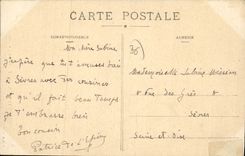 CARTE POSTALE
CORRESPONDANCE
ADRESSE
Ma chère Sabine
J'espère que tu t'amuses bien
à Sèvres avec tes cousines
et qu'il fait beau temps
Je t'embrasse bien
bon cousin
Patrice de
Mademoiselle Sabine
rue des Grès
Sèvres
Seine et Oise